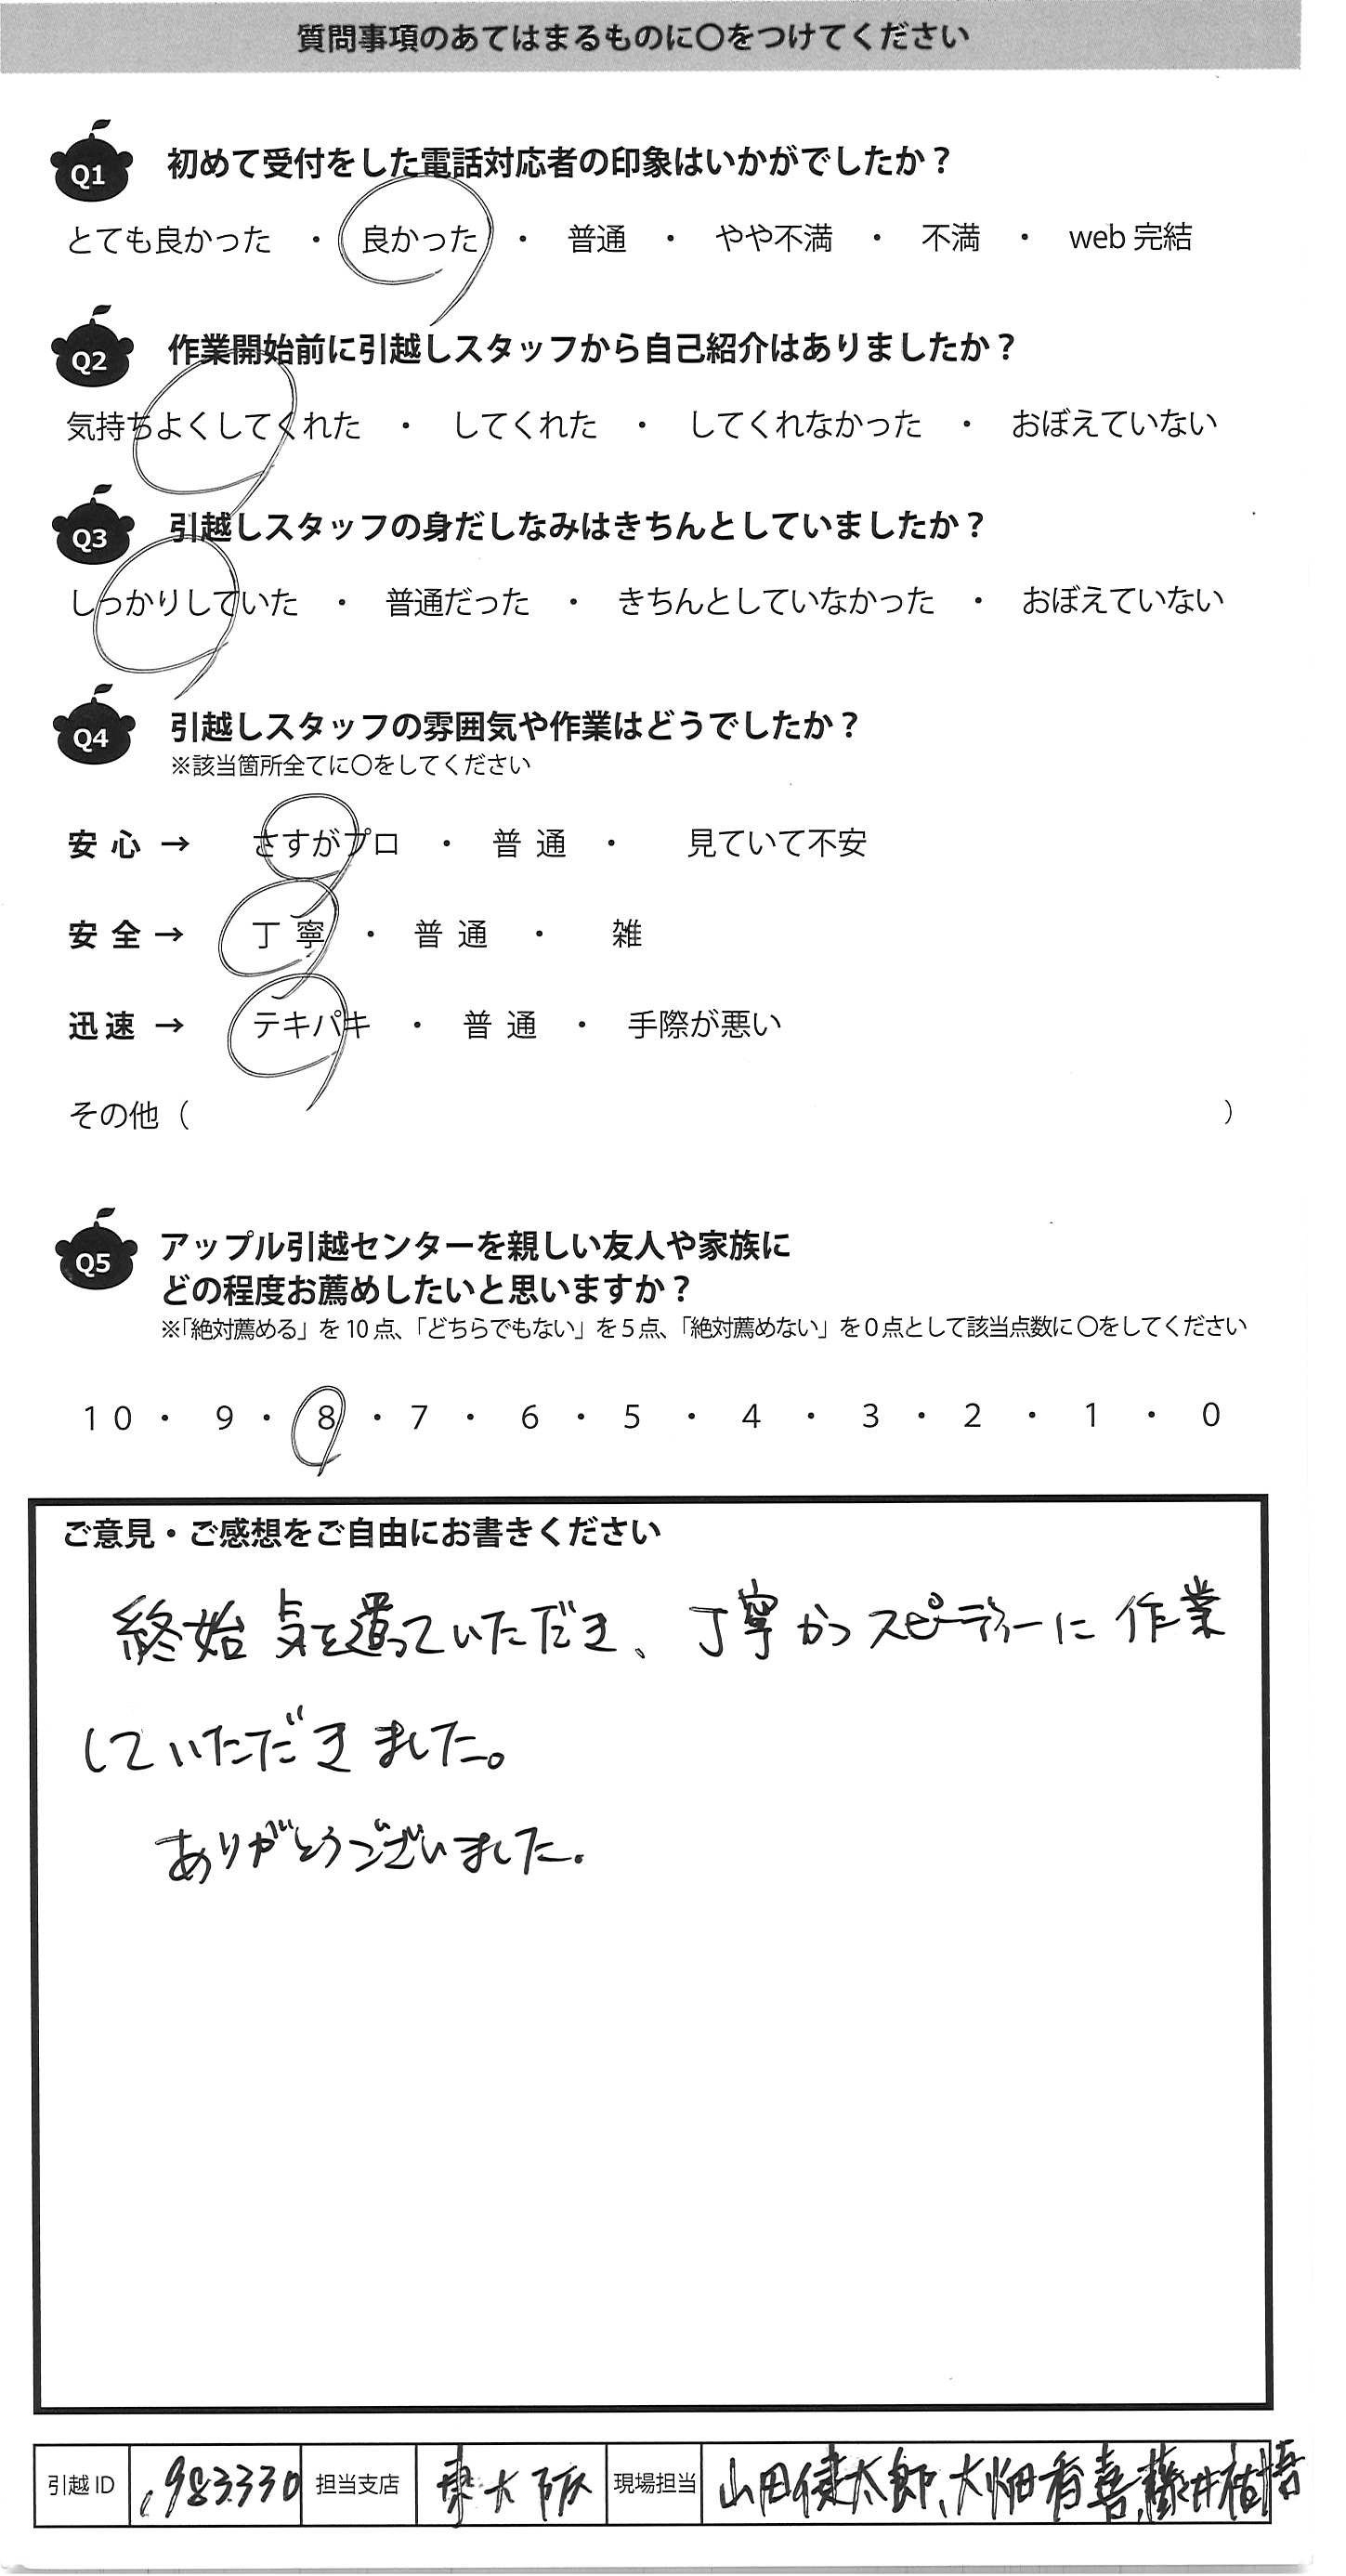 質問事項のあてはまるものに〇をつけてください
Q1 初めて受付をした電話対応者の印象はいかがでしたか？
とても良かった ・ 良かった ・ 普通 ・ やや不満 ・ 不満 ・ web 完結
Q2 作業開始前に引越しスタッフから自己紹介はありましたか？
気持ちよくしてくれた ・ してくれた ・ してくれなかった ・ おぼえていない
Q3 引越しスタッフの身だしなみはきちんとしていましたか？
しっかりしていた ・ 普通だった ・ きちんとしていなかった ・ おぼえていない
Q4 引越しスタッフの雰囲気や作業はどうでしたか？
※該当箇所全てに〇をしてください
安心 → さすがプロ ・ 普通 ・ 見ていて不安
安全 → 丁寧 ・ 普通 ・ 雑
迅速 → テキパキ ・ 普通 ・ 手際が悪い
その他（ ）
Q5 アップル引越センターを親しい友人や家族に
どの程度お薦めしたいと思いますか？
※「絶対薦める」を10点、「どちらでもない」を5点、「絶対薦めない」を0点として該当点数に〇をしてください
10 ・ 9 ・ 8 ・ 7 ・ 6 ・ 5 ・ 4 ・ 3 ・ 2 ・ 1 ・ 0
ご意見・ご感想をご自由にお書きください
終始気を遣っていただき、丁寧かつスピーディーに作業
していただきました。
ありがとうございました.
引越 ID 1983330 担当支店 東大阪 現場担当 山田健太郎、大畑有喜、藤井祐悟